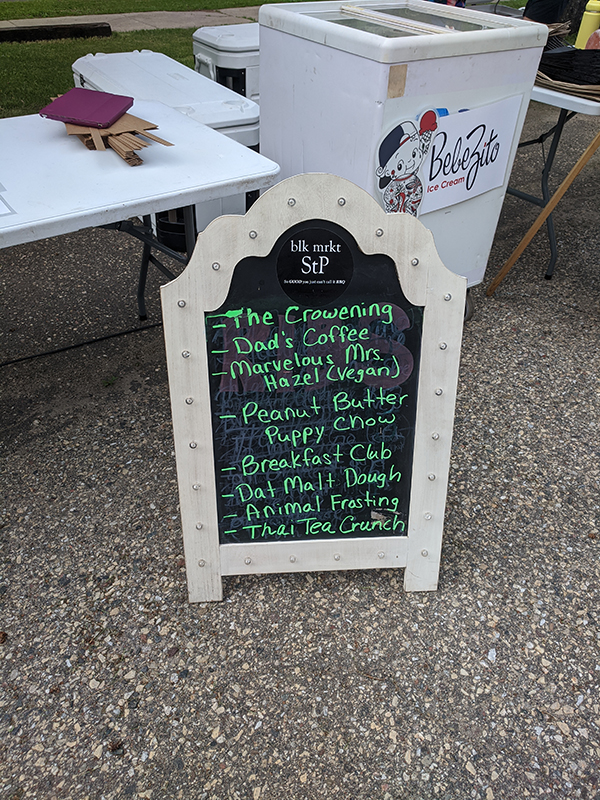 BebeZito
Ice Cream
blk mrkt
StP
So GOOD you just can't call it BBQ
- The Crowening
- Dad's Coffee
- Marvelous Mrs.
Hazel (vegan)
- Peanut Butter
Puppy Chow
- Breakfast Club
- Dat Malt Dough
- Animal Frosting
- Thai Tea Crunch